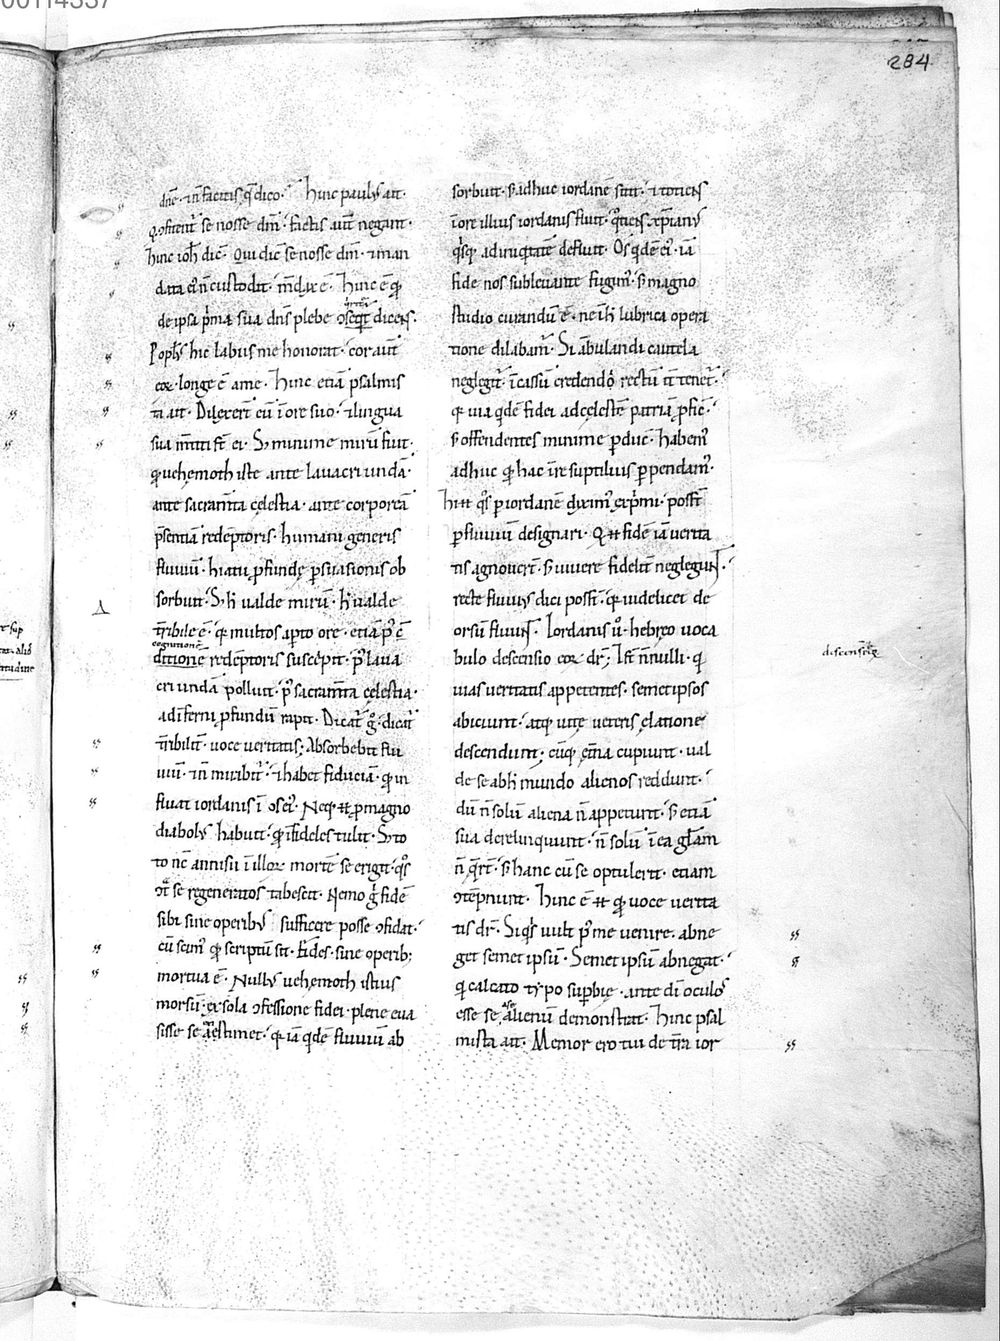 00114337
284
dn̄e · ⁊ n̄ facitis q̄ dico · Hinc paulꝰ ait ·
ꝯfitent̄ se nosse dm̄ · factis aut̄ negant ·
hinc ioh̄ dic̄ · Qui dic̄ se nosse dm̄ · ⁊ man
data eiꝰ n̄ custodit · m̄dax ē · Hinc ē qđ
de ipsa p̄ma sua dn̄s plebe dicens ·
Popłs hic labiis me honorat · cor aut̄
eoꝝ longe ē a me · Hinc etiā psalmis
ta ait · Dilexer̄ eū ī ore suo · ⁊ lingua
sua m̄titi st̄ ei · Sꝫ minime mirū fuit ·
qđ uehemoth iste ante lauacri undā ·
ante sacram̄ta cęlestia · ante corporeā
p̄sentiā redēptoris · humani generis
fluuiū · hiatu ꝓfundę ꝑsuasionis ob
sorbuit · Sꝫ h̄ ualde mirū · h̄ ualde
t̄ribile ē · qđ multos aꝑto ore · etiā p̄ c̄
cognitionē
ditionē redēptoris suscepit · p̄ laua
cri undā polluit · p̄ sacram̄ta cęlestia ·
ad īferni ꝓfundū rapit · Dicat̄ g̊ · dicat̄
t̄ribilit̄ · uoce ueritatis; Absorbebit flu
uiū · ⁊ n̄ mirabit̄ · ⁊ habet fiduciā · qđ in
fluat iordanis ī os eiꝰ · Neqꝫ ꝓ magno
diabolꝰ habuit · qđ īfideles tulit · Sꝫ to
to nc̄ annisu ī illoꝝ mortē se erigit · q̊s
ꝯt̄ se regeneratos tabescit · Nemo g̊ fidē
sibi sine operibꝰ sufficere posse ꝯfidat ·
cū scimꝰ qđ scriptū sit · Fides · sine operibꝫ
mortua ē · Nullꝰ uehemoth istius
morsū · ex sola ꝯfessione fidei · plene eua
sisse se ęstimet · qđ iā qđē fluuiū ab
sorbuit · sꝫ adhuc iordanē sitit · ⁊ totiens
ī ore illius iordanis fluit · q̊tiens xp̄ianꝰ
q̊sqꝫ ad iniquitatē defluit · Os qđē eiꝰ · iā
fide nos subleuante fugimꝰ · sꝫ magno
studio curandū ē · ne ī h̄ lubrica opera
tione dilabamꝰ · Si ābulandi cautela
neglegit̄ · ī cassū credendo rectū it̄ tenet̄ ·
qđ uia qđē fidei ad cęlestē patriā ꝓfic̄ ·
sꝫ offendentes minime ꝑduc̄ · Habemꝰ
adhuc qđ hac ī re suptiliuis ꝑpendamꝰ ·
Hii q̊s ꝑ iordanē diximꝰ exp̄mi · possт̄
ꝑ fluuiū designari · Q fidē iā uerita
tis agnouer̄t · sꝫ uiuere fidelit̄ neglegunt ·
recte fluuiꝰ dici posst̄ · qđ uidelicet de
orsū fluunt · Iordanis ů · hebręo uoca
bulo descensio eoꝝ dr̄; Et st̄ n̄nulli · qi
uias ueritatis appetentes · semetipsos
abiciunt · atqꝫ uitę ueteris elatione
descendunt; cūqꝫ ęt̄na cupiunt · ual
de se ab h̄ mundo alienos reddunt ·
dū n̄ solū aliena n̄ appetunt · sꝫ etiā
sua derelinquunt · n̄ solū ī ea gl̄am
n̄ q̄r̄t · sꝫ hanc cū se optulerit · etiam
ꝯtēpnunt · Hinc ē qđ uoce uerita
tis dr̄ · Siq̊s uult p̄ me uenire · abne
get semet ipsū · Semet ipsū abnegat ·
qi calcato typo supbię · ante dī oculoꝰ
a se
esse se alienū demonstrat · Hinc psal
mista ait · Memor ero tui de t̄ra ior